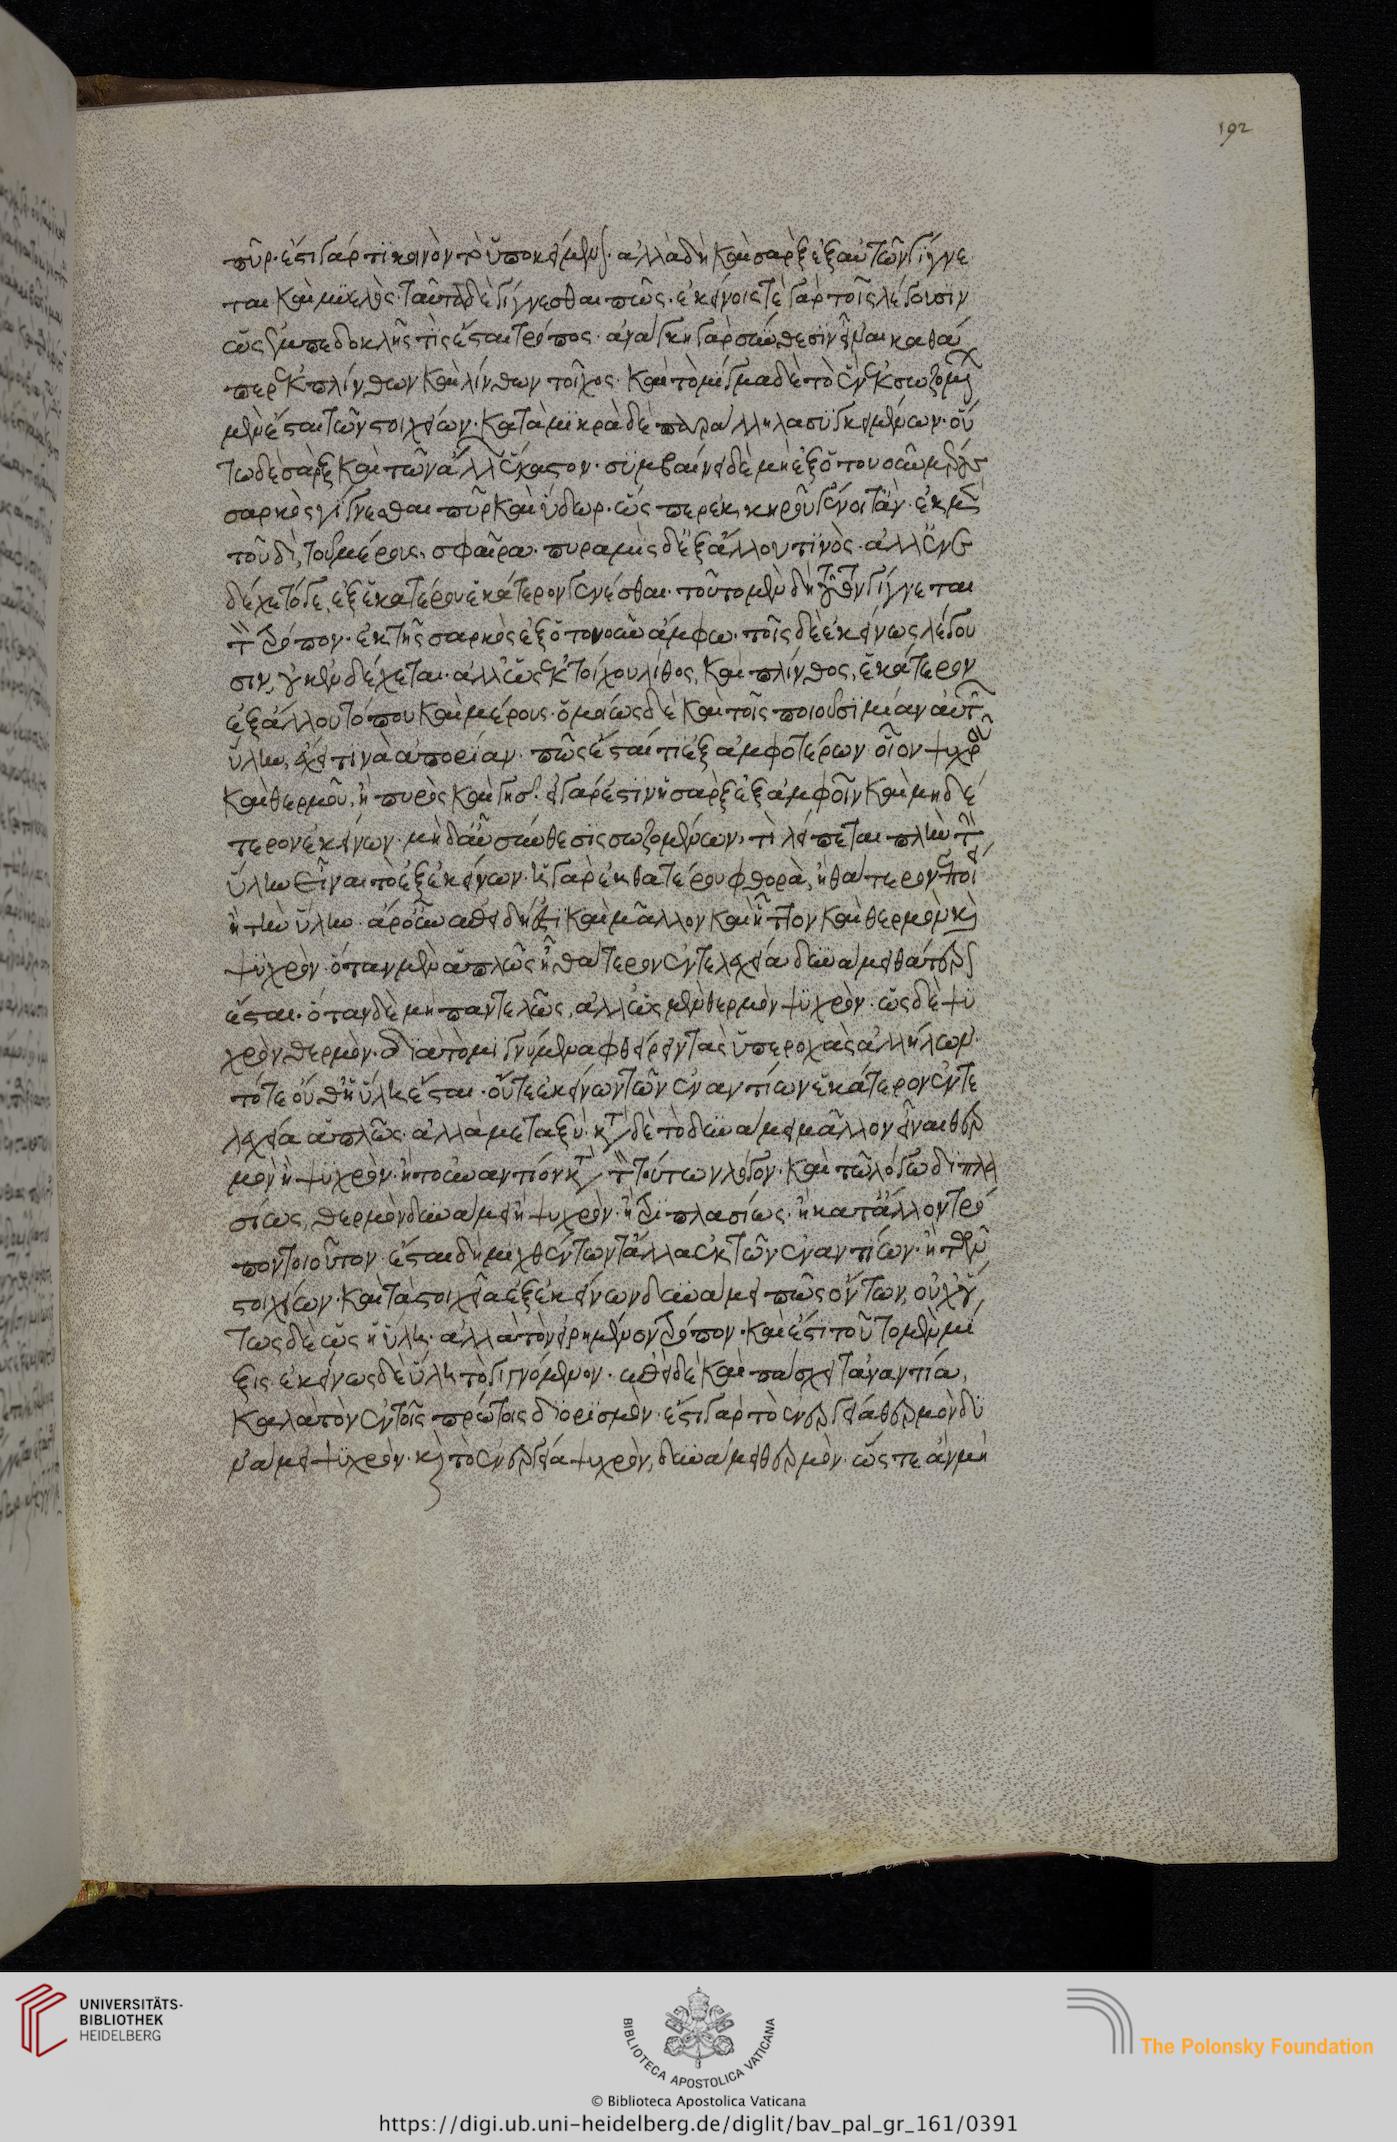 πῦρ· ἔστι γάρ τι κοινὸν τὸ ὑποκείμενον· ἀλλὰ δὴ καὶ σὰρξ ἐξ αὐτῶν γίγνε
ται καὶ μυελὸς· ταῦτα δὲ γίγνεσθαι πῶς· ἐκείνοις τὲ γὰρ τοῖς λέγουσιν
ὡς ἐμπεδοκλῆς τὶς ἔσται τρόπος· ἀνάγκη γὰρ σύνθεσιν εἶναι καθά
περ ἐκ πλίνθων καὶ λίνθων τοῖχος· καὶ τὸ μίγμα δὲ τὸ ἓν ἐκ σωζομένων
μὲν ἔσται τῶν στοιχείων· κατὰ μικρὰ δὲ παράλληλα συγκειμένων· οὕ
τω δὲ σὰρξ καὶ τῶν ἄλλων ἕκαστον· συμβαίνει δὲ μὴ ἐξ ὁτουοῦν μέρους
σαρκὸς γίγνεσθαι πῦρ καὶ ὕδωρ· ὥσπερ ἐκ κηροῦ γένοιτ ἂν· ἐκ μὲν
τοῦ δὶ, τοῦ μέρους, σφαῖρα· πυραμὶς δ ἐξ ἄλλου τινὸς· ἀλλ ἐνε
δέχετό γε, ἐξ ἑκατέρου ἑκάτερον γενέσθαι· τοῦτο μὲν δὴ τοῦτον γίγνεται
τὸν τρόπον· ἐκ τῆς σαρκὸς ἐξ ὁτουοῦν ἄμφω· τοῖς δὲ ἐκείνως λέγου
σιν, οὐκ ἐνδέχεται· ἀλλ ὡς ἐκ τοίχου λίθος, καὶ πλίνθος, ἑκάτερον
ἐξ ἄλλου τόπου καὶ μέρους· ὁμοίως δὲ καὶ τοῖς ποιοῦσι μίαν αὐτῶν
ὕλην, ἔχει τινὰ ἀπορίαν· πῶς ἔσται τι ἐξ ἀμφοτέρων· οἷον ψυχροῦ
καὶ θερμοῦ, ἢ πυρὸς καὶ γῆς· εἰ γάρ ἐστιν ἡ σὰρξ ἐξ ἀμφοῖν καὶ μηδέ
τερον ἐκείνων· μὴ δ αὖ σύνθεσις σωζομένων, τὶ λείπεται πλὴν
ὕλην εἶναι τὸ ἐξ ἐκείνων· ἡ γὰρ ἐκ θατέρου φθορὰ, ἢ θάτερον ποιεῖ
ἢ τὴν ὕλην· ἆρ οὖν ἐπειδή ἐστι καὶ μᾶλλον καὶ ἧττον καὶ θερμὸν καὶ
ψυχρὸν· ὅταν μὲν ἁπλῶς ᾖ θάτερον ἐντελεχεία δυνάμει θάτερον
ἔσται· ὅταν δὲ μὴ παντελῶς, ἀλλ ὡς μὲν θερμὸν ψυχρὸν· ὡς δὲ ψυ
χρὸν θερμὸν· διὰ τὸ μιγνύμενα φθείρειν τὰς ὑπεροχὰς ἀλλήλων·
τότε οὔθ ἡ ὕλη ἔσται· οὔτε ἐκείνων τῶν ἐναντίων ἑκάτερον ἐντε
λεχεία ἁπλῶς· ἀλλὰ μεταξὺ· κατὰ δὲ τὸ δυνάμει μᾶλλον εἶναι θερ
μὸν ἢ ψυχρὸν· ἢ τοὐναντίον κατὰ τὸν τούτων λόγον· καὶ τῶ λόγω διπλα
σίως, θερμὸν δυνάμει ἢ ψυχρὸν· ἢ τριπλασίως· ἢ κατ ἄλλον τρό
πον τοιοῦτον· ἔσται δὴ μιχθέντων τἆλλα ἐκ τῶν ἐναντίων· ἢ τῶν
στοιχείων· καὶ τὰ στοιχεῖα ἐξ ἐκείνων δυνάμει πῶς ὄντων, οὐχ οὕ
τως δὲ ὡς ἡ ὕλη· ἀλλὰ τὸν εἰρημένον τρόπον· καὶ ἔστι τοῦτο μὲν μί
ξις· ἐκείνως δὲ ὕλη τὸ γιγνόμενον· ἐπεὶ δὲ καὶ πάσχει τἀναντία,
κατὰ τὸν ἐν τοῖς πρώτοις διορισμὸν· ἔστι γὰρ τὸ ἐνεργεία θερμὸν δυ
νάμει ψυχρὸν· καὶ τὸ ἐνεργεία ψυχρὸν, δυνάμει θερμὸν· ὥστε ἂν μὴ
192
UNIVERSITÄTS-
BIBLIOTHEK
HEIDELBERG
BIBLIOTECA APOSTOLICA VATICANA
The Polonsky Foundation
© Biblioteca Apostolica Vaticana
https://digi.ub.uni-heidelberg.de/diglit/bav_pal_gr_161/0391